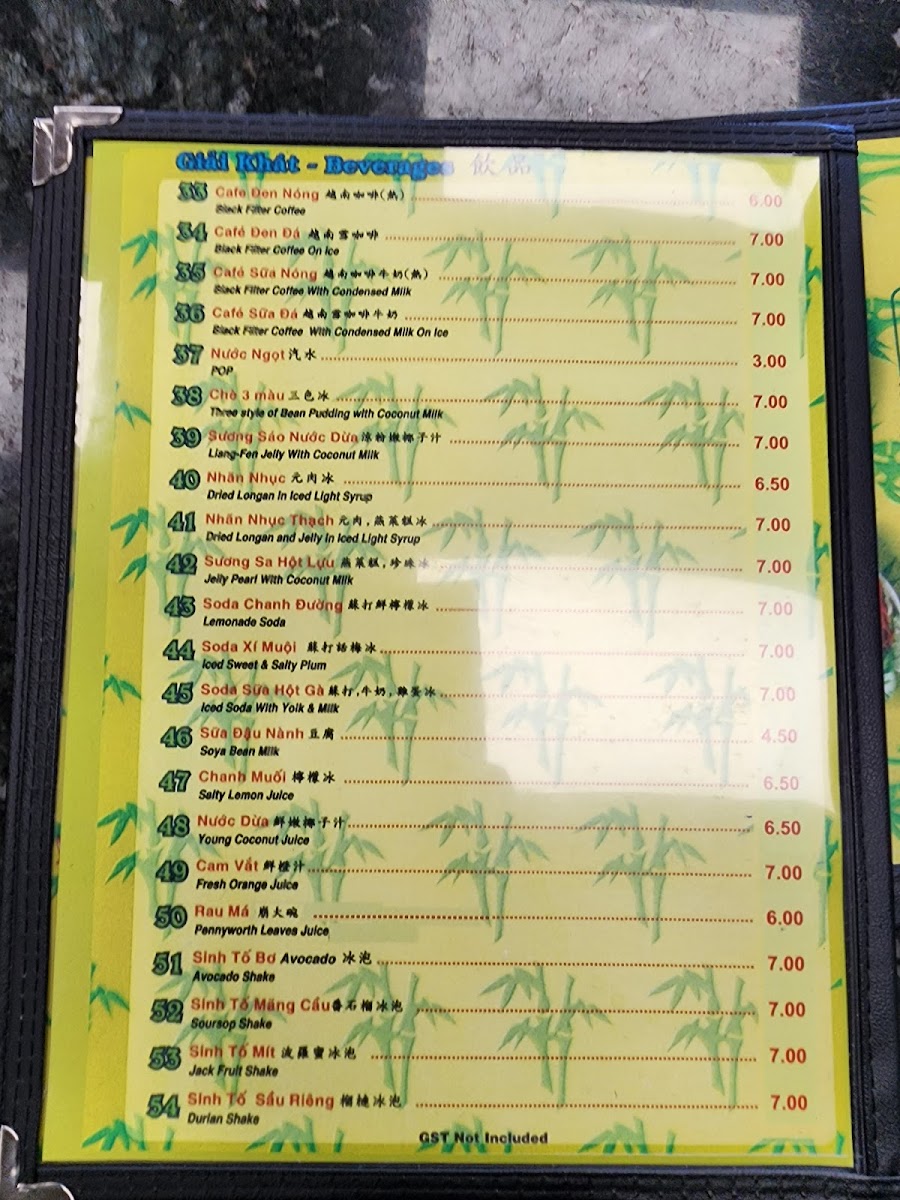 Giải Khát - Beverages 飲品
33 Cafe Đen Nóng 越南咖啡(熱) 6.00
Black Filter Coffee
34 Café Đen Đá 越南雪咖啡 7.00
Black Filter Coffee On Ice
35 Café Sữa Nóng 越南咖啡牛奶(熱) 7.00
Black Filter Coffee With Condensed Milk
36 Café Sữa Đá 越南雪咖啡牛奶 7.00
Black Filter Coffee With Condensed Milk On Ice
37 Nước Ngọt 汽水 3.00
POP
38 Chè 3 màu 三色冰 7.00
Three style of Bean Pudding with Coconut Milk
39 Sương Sáo Nước Dừa 涼粉嫩椰子汁 7.00
Liang-Fen Jelly With Coconut Milk
40 Nhãn Nhục 元肉冰 6.50
Dried Longan In Iced Light Syrup
41 Nhãn Nhục Thạch 元肉,燕菜糕冰 7.00
Dried Longan and Jelly In Iced Light Syrup
42 Sương Sa Hột Lựu 燕菜糕,珍珠冰 7.00
Jelly Pearl With Coconut Milk
43 Soda Chanh Đường 蘇打鮮檸檬冰 7.00
Lemonade Soda
44 Soda Xí Muội 蘇打話梅冰 7.00
Iced Sweet & Salty Plum
45 Soda Sữa Hột Gà 蘇打,牛奶,雞蛋冰 7.00
Iced Soda With Yolk & Milk
46 Sữa Đậu Nành 豆腐 4.50
Soya Bean Milk
47 Chanh Muối 檸檬冰 6.50
Salty Lemon Juice
48 Nước Dừa 鮮嫩椰子汁 6.50
Young Coconut Juice
49 Cam Vắt 鮮橙汁 7.00
Fresh Orange Juice
50 Rau Má 崩大碗 6.00
Pennyworth Leaves Juice
51 Sinh Tố Bơ Avocado 冰泡 7.00
Avocado Shake
52 Sinh Tố Mãng Cầu 番石榴冰泡 7.00
Soursop Shake
53 Sinh Tố Mít 波羅蜜冰泡 7.00
Jack Fruit Shake
54 Sinh Tố Sầu Riêng 榴槤冰泡 7.00
Durian Shake
GST Not Included